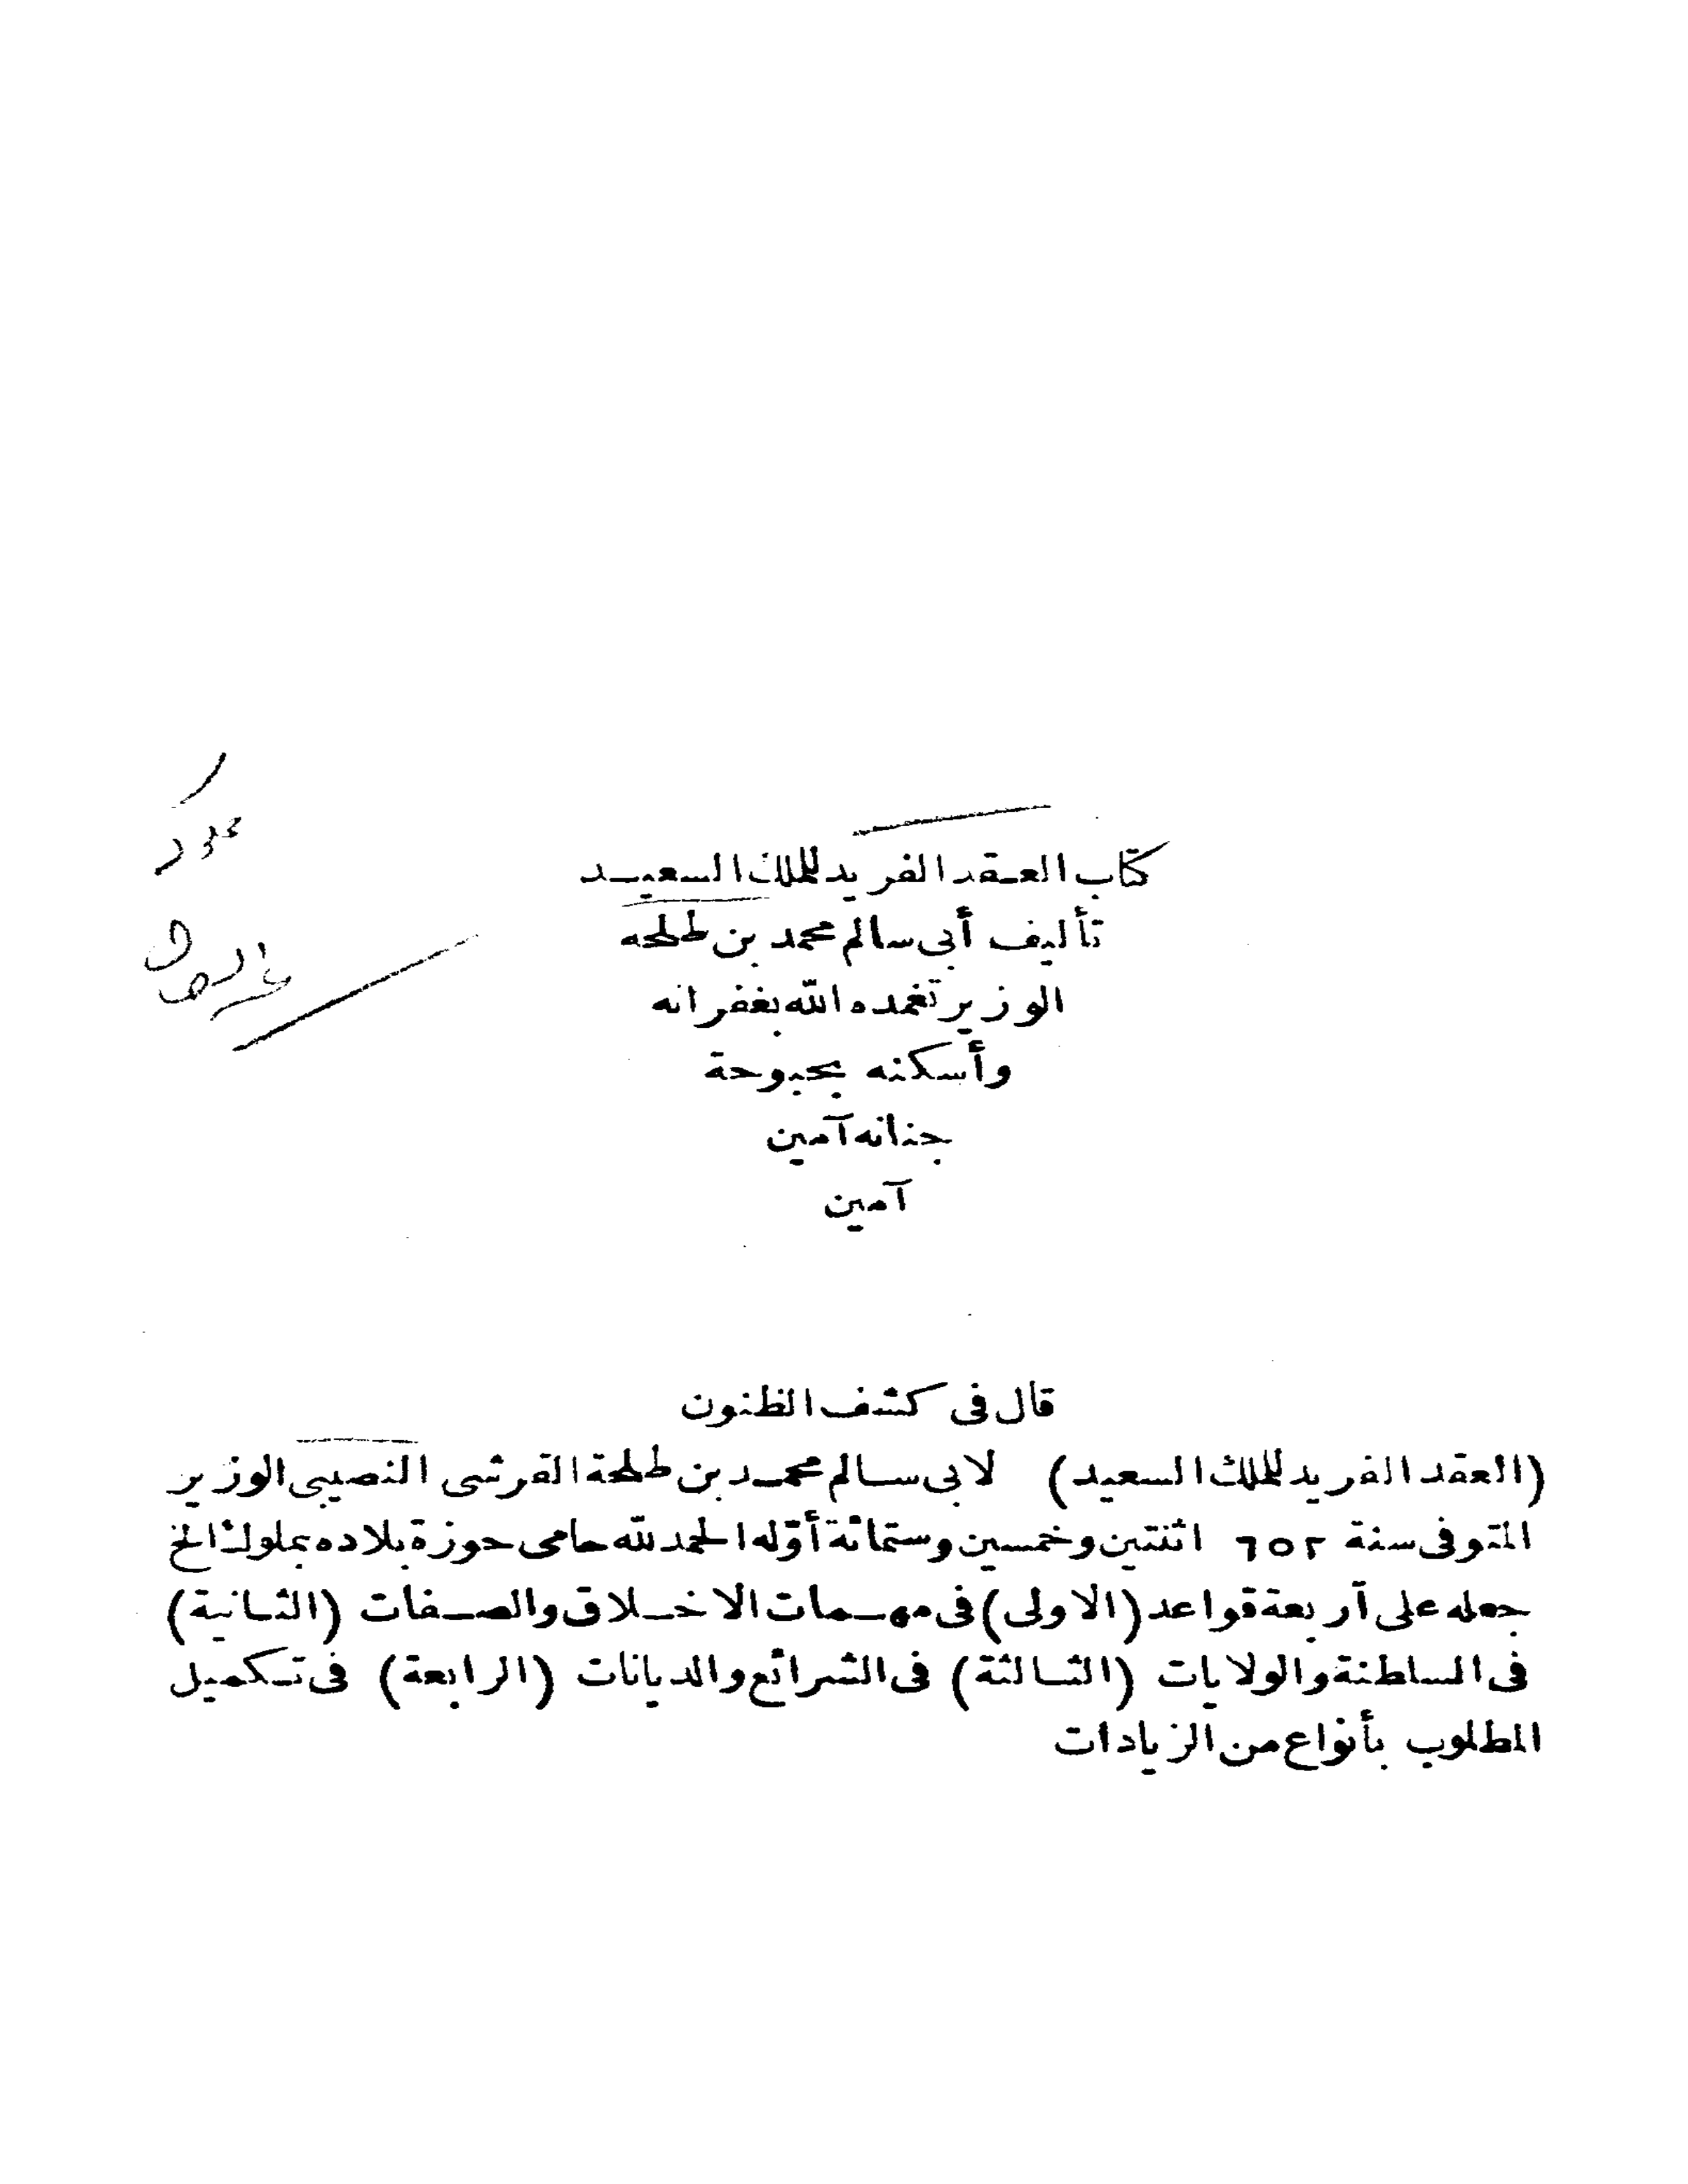 كتاب العقد الفريد للملك السعيد
تأليف أبى سالم محمد بن طلحه
الوزير تغمده الله بغفرانه
وأسكنه بحبوحة
جنانه آمين
آمين
قال فى كشف الظنون
(العقد الفريد للملك السعيد) لابى سالم محمد بن طلحة القرشى النصيبى الوزير
المتوفى سنة ٦٥٢ اثنتين وخمسين وستمائة أوّله الحمد لله حامى حوزة بلاده بملوك الخ
جعله على آربعة قواعد (الاولى) فى مهمات الاخلاق والصفات (الثانية)
فى السلطنة والولايات (الثالثة) فى الشرائع والديانات (الرابعة) فى تكميل
المطلوب بأنواع من الزيادات